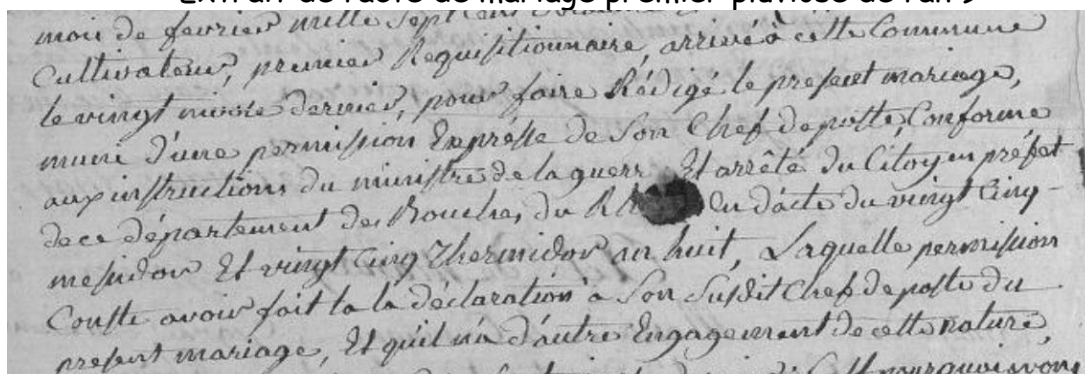 Extrait de l'acte de mariage premier pluviôse de l'an 9
mois de fevrier mille Sept cent
Cultivateur, premier Requisitionnaire, arrivé à cette Commune
le vingt nivose dernier, pour faire Rédigé le present mariage,
muni d'une permission Expresse de Son Chef de poste, Conforme
aux instructions du ministre de la guerre Et arrêté du Citoyen préfet
de ce département des Bouches du en dâcte du vingt Cinq
messidor Et vingt Cinq Thermidor an huit, Laquelle permission
Conste avoir fait la déclaration à Son Susdit Chef de poste du
present mariage, Et qu'il n'a d'autre Engagement de cette nature,
C'est pourquoi avons